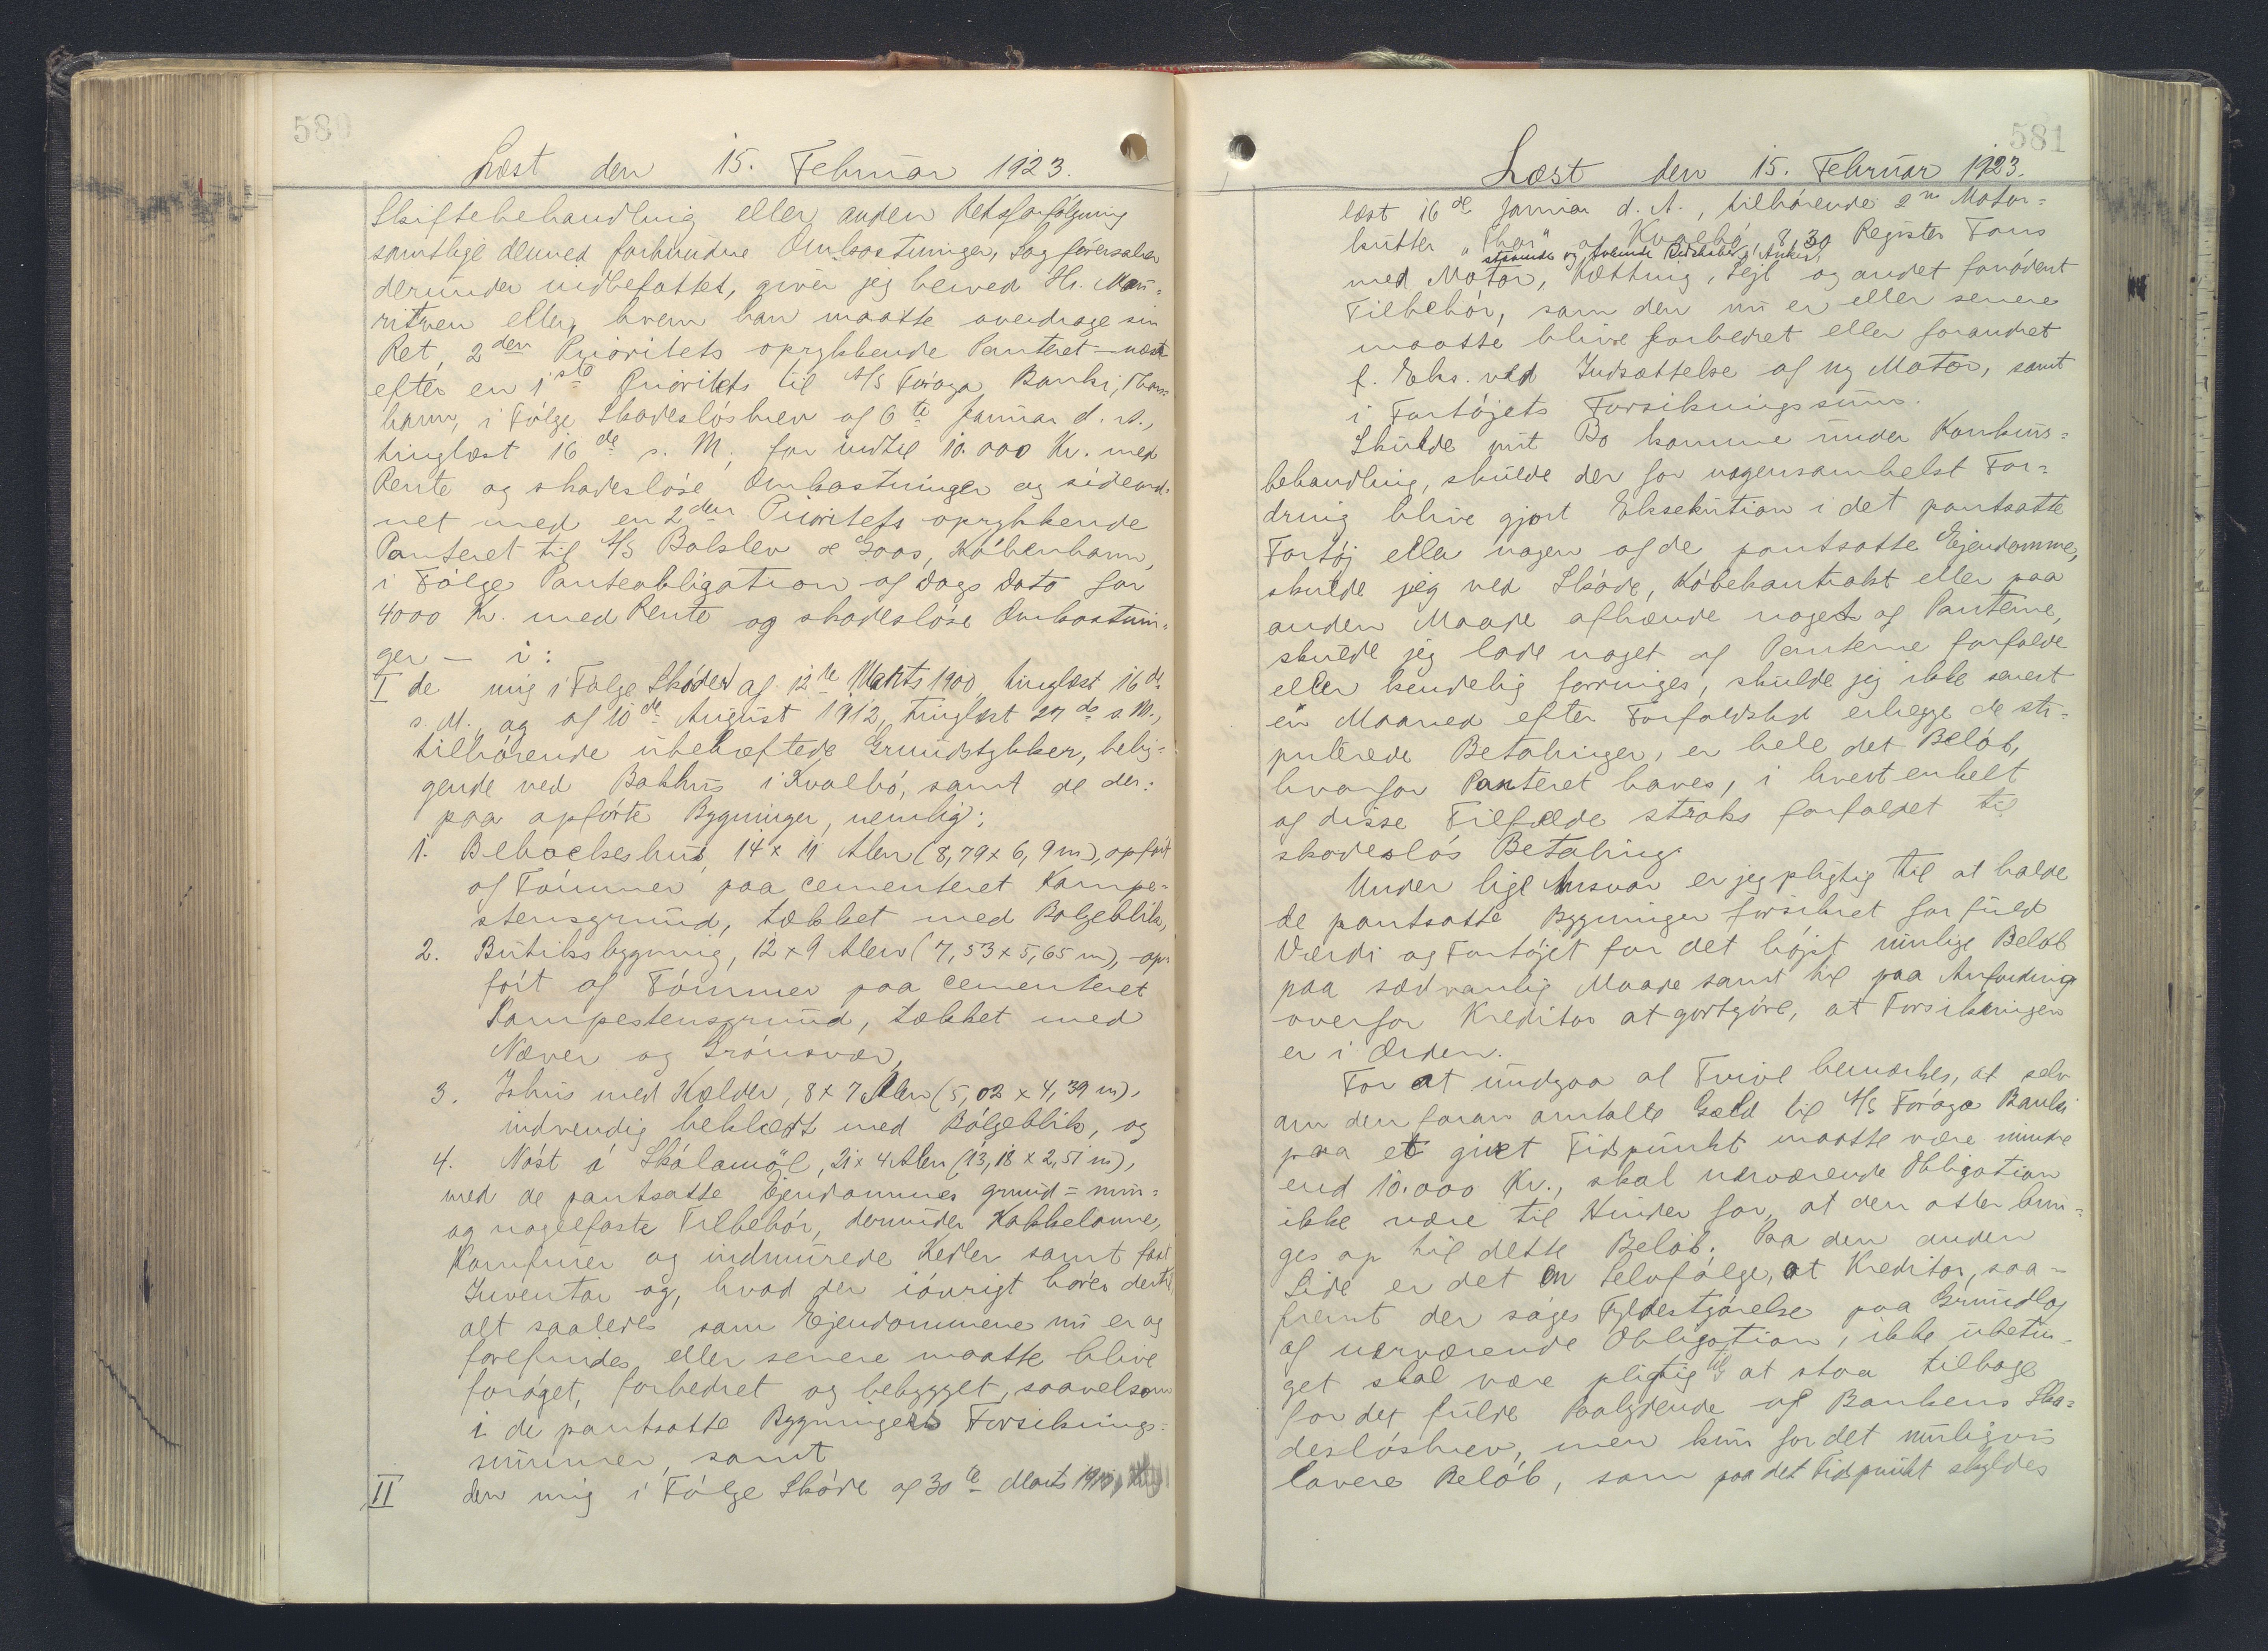 580
Læst den 15. Februar 1923.
Skiftebehandling eller anden Retsforfølgning
samtlige dermed forbundne Omkostninger, Sagførersalær
derunder indbefattet, giver jeg herved Hr. Mau=
ritzen eller, hvem han maatte overdrage sin
Ret, 2den Prioritets oprykkende Panteret – næst
efter en 1ste Prioritets til A/S Føroya Banki, Thors=
havn, i Følge Skadesløsbrev af 6te Januar d. A.,
tinglæst 16de s. M., for indtil 10.000 Kr. med
Rente og skadesløse Omkostninger og sideord=
net med en 2den Prioritets oprykkende
Panteret til A/S Balslev & Goos, København,
i Følge Panteobligation af Dags Dato for
4000 Kr. med Rente og skadesløse Omkostnin=
ger – i:
I de mig i Følge Skøder af 12te Marts 1900, tinglæst 16de
s. M., og af 10de August 1912, tinglæst 27de s. M.,
tilhørende ubehæftede Grundstykker, belig=
gende ved Bakhus i Kvalbø, samt de der=
paa opførte Bygninger, nemlig:
1. Beboelseshus, 14 x 11 Alen (8,79 x 6,9 m), opført
af Tømmer paa cementeret Kampe=
stensgrund, tækket med Bølgeblik,
2. Butiksbygning, 12 x 9 Alen (7,53 x 5,65 m), – op=
ført af Tømmer paa cementeret
Kampestensgrund, tækket med
Næver og Grønsvær,
3. Ishus med Kælder, 8 x 7 Alen (5,02 x 4,39 m),
indvendig beklædt med Bølgeblik, og
4. Nøst á Skálamøl, 21 x 4 Alen (13,18 x 2,51 m),
med de pantsatte Ejendommes grund= mur=
og nagelfaste Tilbehør, derunder Kakkelovne,
Komfurer og indmurede Kedler samt fast
Inventar og, hvad der iøvrigt hører dertil,
alt saaledes som Ejendommene nu er og
forefindes eller senere maatte blive
forøget, forbedret og bebygget, saavelsom
i de pantsatte Bygningers Forsikrings=
summer, samt
II den mig i Følge Skøde af 30te Marts
581
Læst den 15. Februar 1923.
læst 16de Januar d. A., tilhørende 2m Motor=
kutter "Thor" af Kvalbø, 8,30 Register Tons
staaende og løbende Redskaber, Anker,
med Motor, Kætting, Sejl og andet fornødent
Tilbehør, som den nu er eller senere
maatte blive forbedret eller forandret
f. Eks. ved Indsættelse af ny Motor, samt
i Fartøjets Forsikringssum.
Skulde mit Bo komme under Konkurs=
behandling, skulde der for nogensomhelst For=
dring blive gjort Eksekution i det pantsatte
Fartøj eller nogen af de pantsatte Ejendomme,
skulde jeg ved Skøde, Købekontrakt eller paa
anden Maade afhænde noget af Panterne,
skulde jeg lade noget af Panterne forfalde
eller kendelig forringes, skulde jeg ikke senest
en Maaned efter Forfaldstid erlægge de sti=
pulerede Betalinger, er hele det Beløb,
hvorfor Panteret haves, i hvert enkelt
af disse Tilfælde straks forfaldet til
skadesløs Betaling.
Under lige Ansvar er jeg pligtig til at holde
de pantsatte Bygninger forsikret for fuld
Værdi og Fartøjet for det højst mulige Beløb
paa sædvanlig Maade samt til paa Anfordring
overfor Kreditor at godtgøre, at Forsikringen
er i Orden.
For at undgaa al Tvivl bemærkes, at selv
om den foran omtalte Gæld til A/S Føroya Banki
paa et givet Tidspunkt maatte være mindre
end 10.000 Kr., skal nærværende Obligation
ikke være til Hinder for, at den atter brin=
ges op til dette Beløb. Paa den anden
Side er det en Selvfølge, at Kreditor, saa=
fremt der søges Fyldestgørelse paa Grundlag
af nærværende Obligation, ikke ubetin=
get skal være pligtig til at staa tilbage
for det fulde Paalydende af Bankens Ska=
desløsbrev, men kun for det muligvis
lavere Beløb, som paa det Tidspunkt skyldes